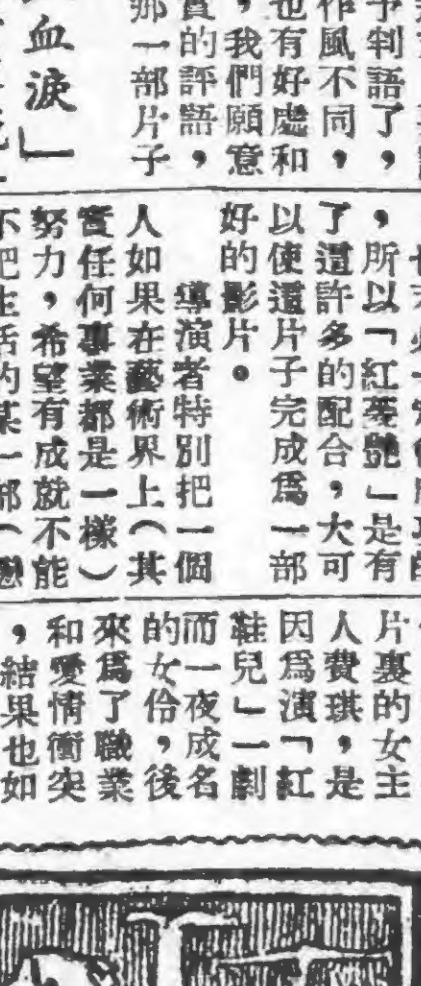 予判語了，
作風不同，
也有好處和
，我們願意
實的評語，
那一部片子
血淚」
，所以「紅菱艷」是有
了這許多的配合，大可
以使這片子完成爲一部
好的影片。
導演者特別把一個
人如果在藝術界上（其
實任何事業都是一樣）
努力，希望有成就不能
不把生活的某一部（戀
片裏的女主
人費琪，是
因爲演「紅
鞋兒」一劇
而一夜成名
的女伶，後
來爲了職業
和愛情衝突
，結果也如